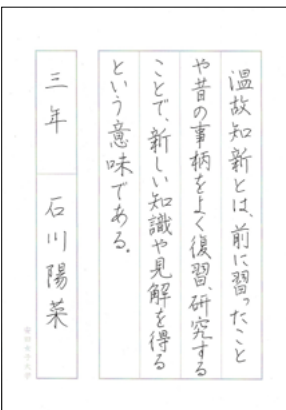 温故知新とは、前に習ったこと
や昔の事柄をよく復習、研究する
ことで、新しい知識や見解を得る
という意味である。
三年 石川陽菜